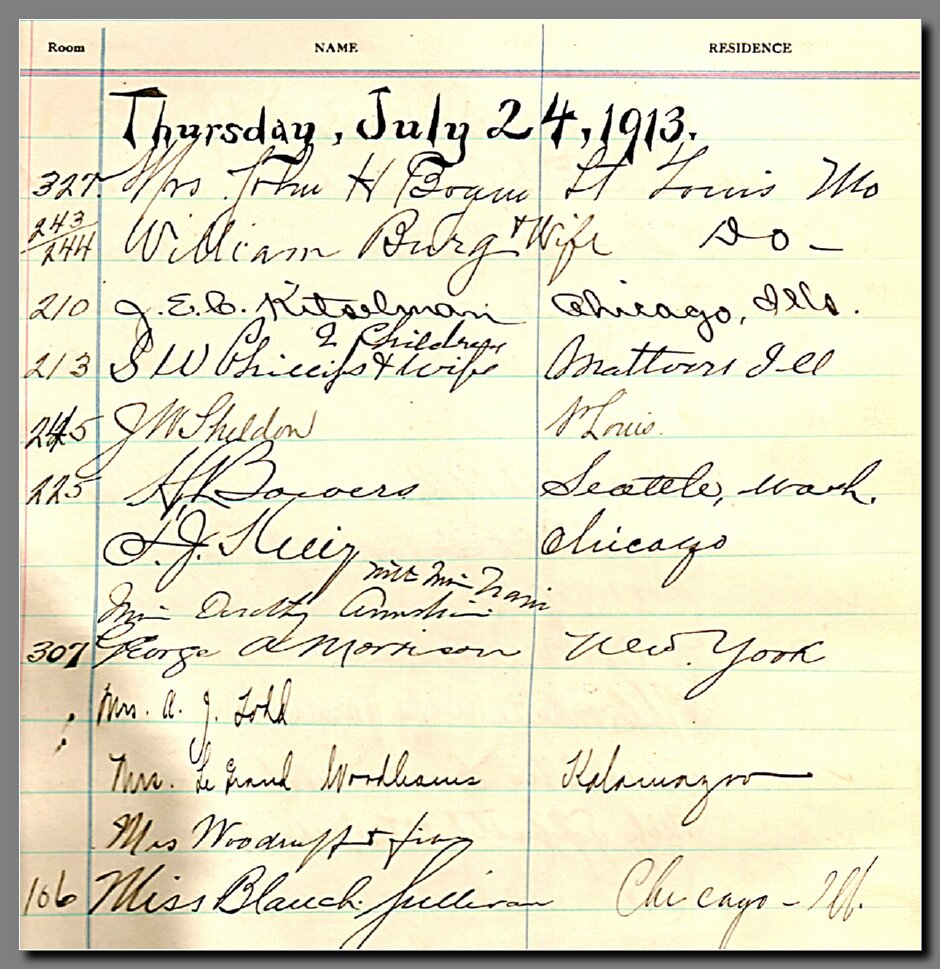 Room NAME RESIDENCE
Thursday, July 24, 1913.
327 Mrs John H Bogue St Louis Mo
243/244 William Burg & Wife Do —
210 J. E. C. Kitselman Chicago, Ills.
2 Children
213 S W Phillips & wife Mattoon Ill
245 J W Sheldon St Louis.
225 Bowers Seattle, Wash.
J. Chicago
with Miss
Miss Dorothy
307 George A Morrison New York
Mrs. A. J. Todd
Mrs. Le Grand Kalamazoo
Mrs Woodruff &
106 Miss Blanch Sullivan Chicago - Ill.